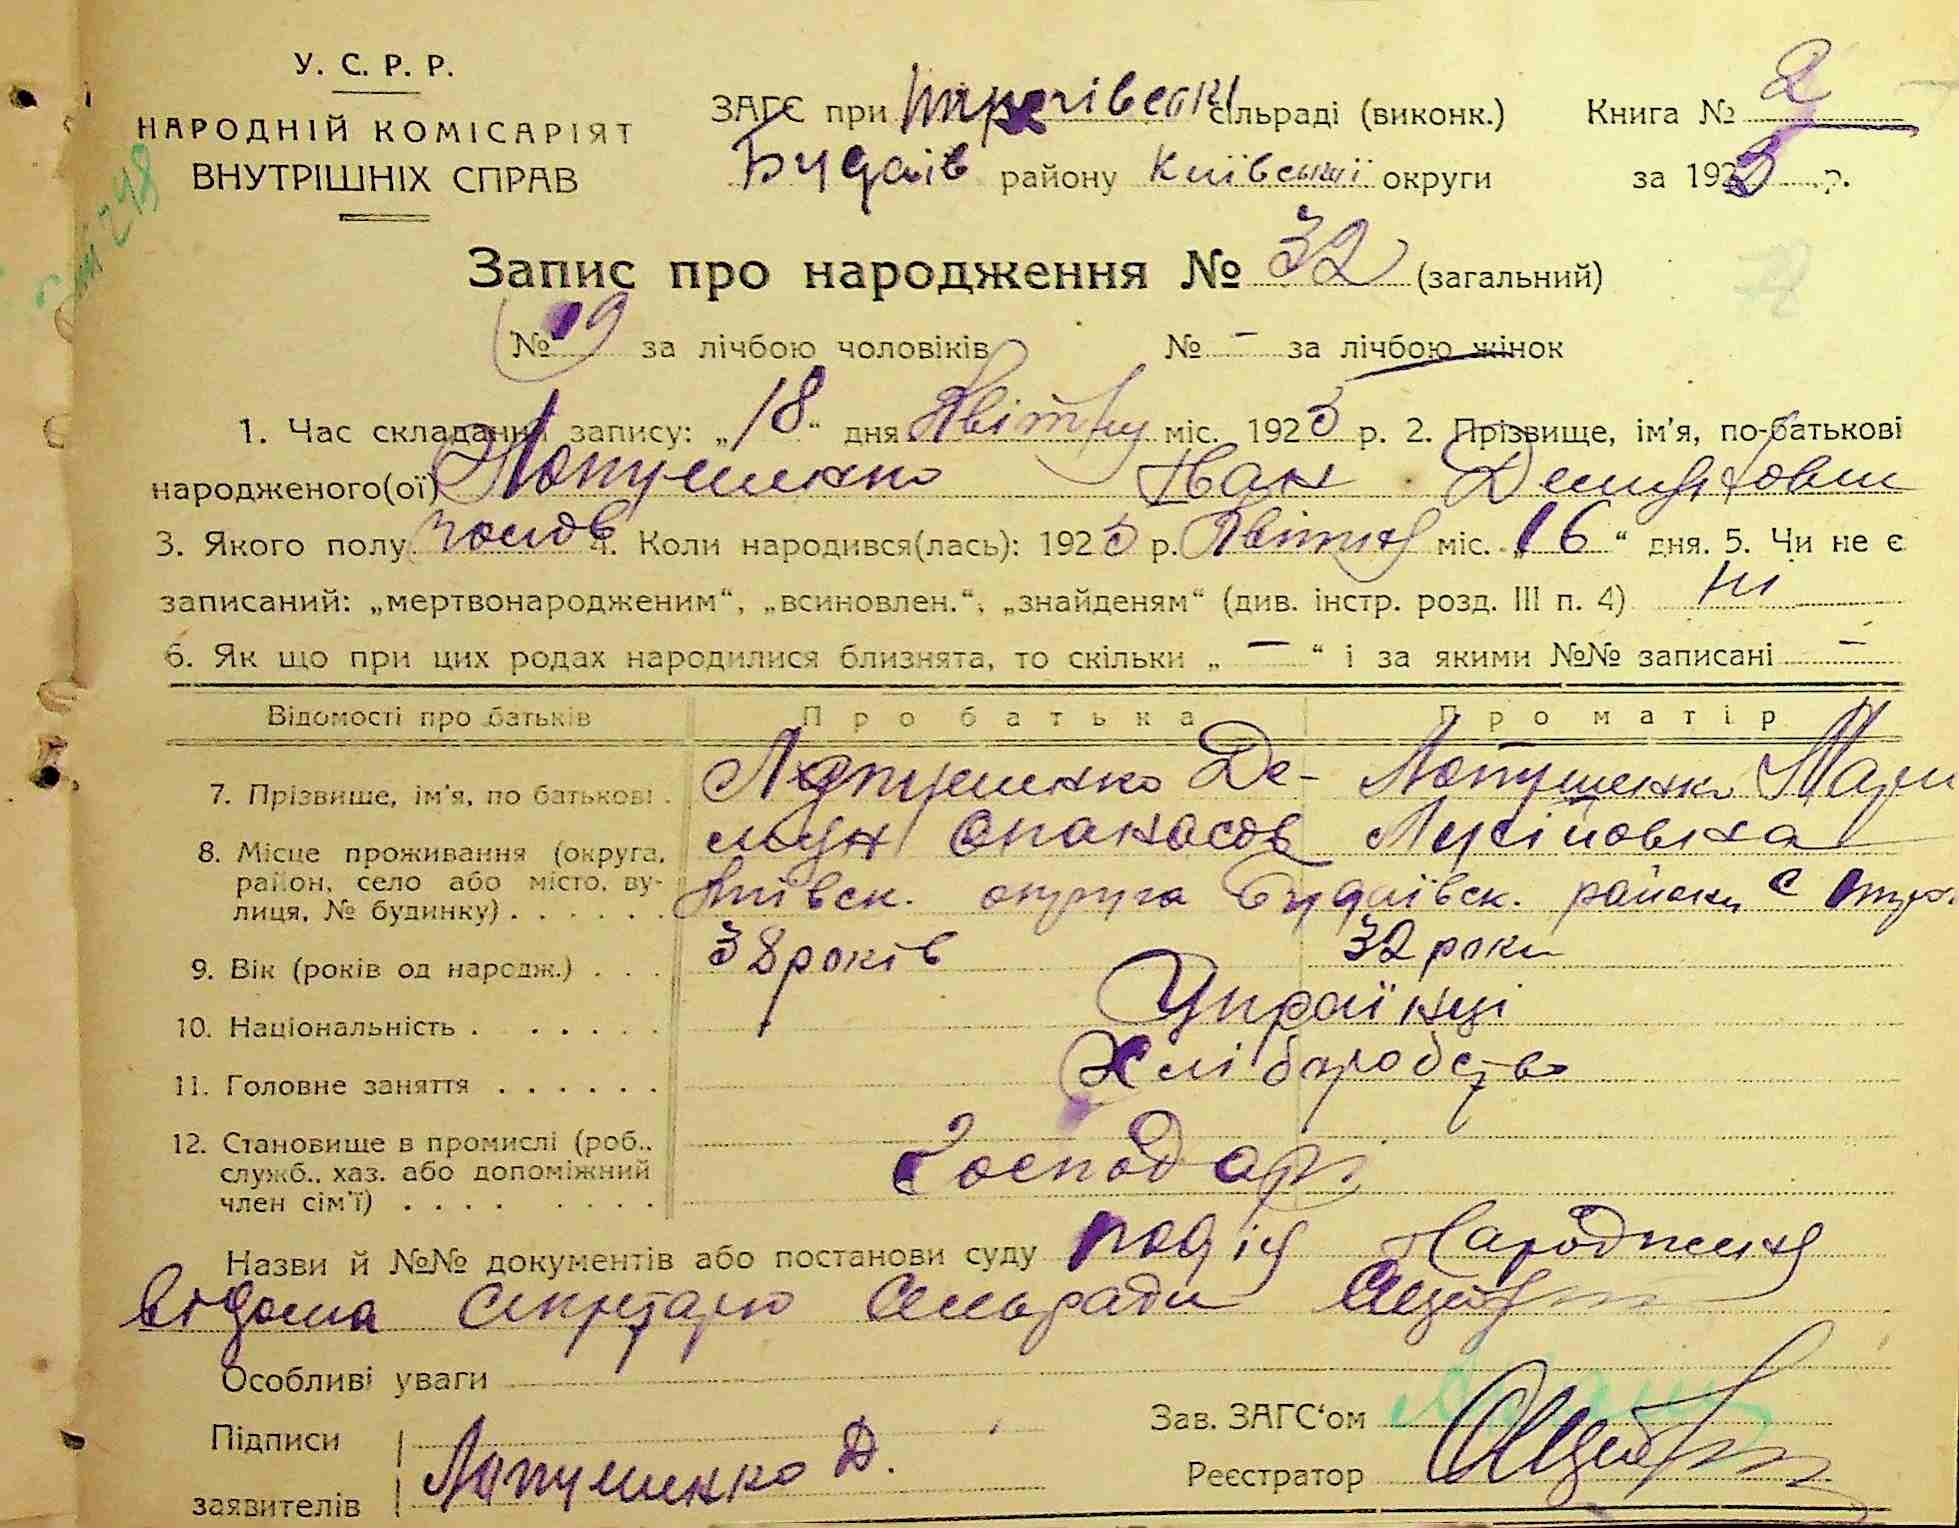 У. С. Р. Р.
НАРОДНІЙ КОМІСАРІЯТ
ВНУТРІШНІХ СПРАВ
ЗАГС при сільраді (виконк.) Книга № 2
Будаїв району Київської округи за 1925 р.
Запис про народження № 32 (загальний)
№ 19 за лічбою чоловіків № – за лічбою жінок
1. Час складання запису: „18“ дня Квітня міс. 1925 р. 2. Прізвище, ім'я, по-батькові
народженого(ої) Лопушенко Іван
3. Якого полу чолов 4. Коли народився(лась): 1925 р. Квітня міс. „16“ дня. 5. Чи не є
записаний: „мертвонародженим“, „всиновлен.“, „знайденям“ (див. інстр. розд. III п. 4) Ні
6. Як що при цих родах народилися близнята, то скільки „ – “ і за якими №№ записані –
Відомості про батьків Про батька Про матір
7. Прізвище, ім'я, по батькові . Лопушенко Де- Лопушенко Мари
мян Опанасов Мусіївна
8. Місце проживання (округа, район, село або місто, вулиця, № будинку) . . . . . . Київск. округа Будаївск. району с
9. Вік (років од народж.) . . . 38 років 32 роки
10. Національність . . . . . . . Українці
11. Головне заняття . . . . . . Хліборобство
12. Становище в промислі (роб., служб., хаз. або допоміжний член сім'ї) . . . . . . . . Господарі
Назви й №№ документів або постанови суду подія Народження
відома Секретарю Сільради
Особливі уваги
Підписи
заявителів Лопушенко Д.
Зав. ЗАГС'ом
Реєстратор